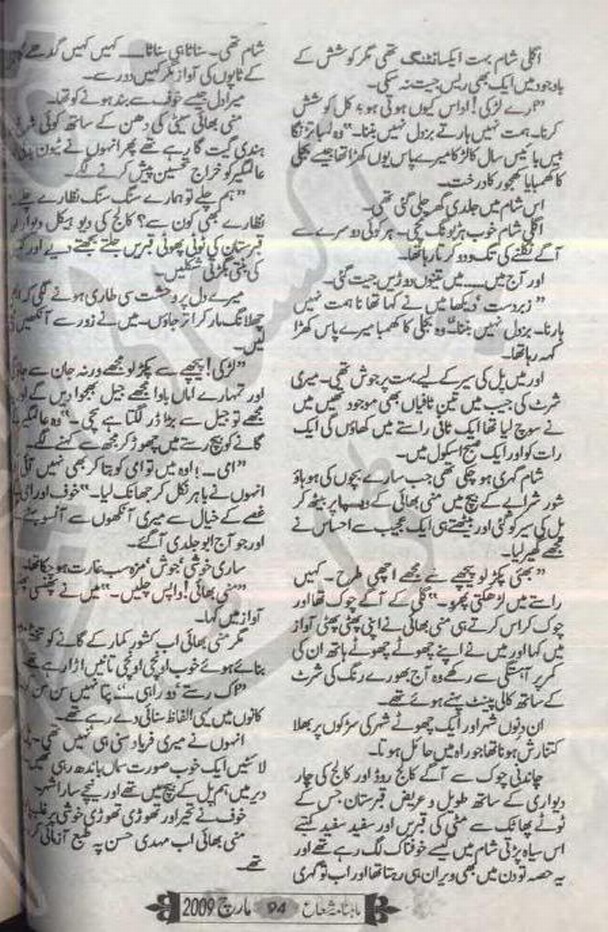 اگلی شام بہت ایکسائٹنگ تھی مگر کوشش کے
باوجود میں ایک بھی ریس جیت نہ سکی۔
”ارے لڑکی! اداس کیوں ہوتی ہو، کل کو کوشش
کرنا۔ ہمت نہیں ہارتے بزدل نہیں بننا۔“ وہ لمبا تڑنگا
بیس بائیس سال کا لڑکا میرے پاس یوں کھڑا تھا جیسے بجلی
کا کھمبا یا کھجور کا درخت۔
اس شام میں جلدی گھر چلی گئی تھی۔
اگلی شام خوب ہڑبونگ مچی۔ ہر کوئی دوسرے سے
آگے نکلنے کی تگ و دو کر تا رہا تھا۔
اور آج میں..... میں تینوں دوڑیں جیت گئی۔
”زبردست، دیکھا میں نے کہا تھا نا ہمت نہیں
ہارنا۔ بزدل نہیں بننا۔“ وہ بجلی کا کھمبا میرے پاس کھڑا
کہہ رہا تھا۔
اور میں پل کی سیر کے لیے بہت پرجوش تھی۔ میری
شرٹ کی جیب میں تین ٹافیاں بھی موجود تھیں میں
نے سوچ لیا تھا ایک ٹافی راستے میں کھاؤں گی ایک
رات کو اور ایک صبح اسکول میں۔
شام گہری ہو چکی تھی جب سارے بچوں کی ہاؤ ہو
شور شرابے کے بیچ میں منی بھائی کے پر بیٹھ کر
پل کی سیر کو گئی اور بیٹھتے ہی ایک عجیب سے احساس نے
مجھے گھیر لیا۔
”بھئی پکڑ لو پیچھے سے مجھے اچھی طرح۔ کہیں
راستے میں لڑھکتی پھرو۔“ گلی کے آگے چوک تھا اور
چوک کراس کرتے ہی منی بھائی نے اپنی پھٹی پھٹی آواز
میں کہا اور میں نے اپنے چھوٹے چھوٹے ہاتھ ان کی
کمر پر آہستگی سے رکھے وہ آج بھورے رنگ کی شرٹ
کے ساتھ کالی پینٹ پہنے ہوئے تھے۔
ان دنوں شہر اور ایک چھوٹے شہر کی سڑکوں پر بھلا
کتنا رش ہوتا تھا جو راہ میں حائل ہوتا۔
چاندنی چوک سے آگے کالج روڈ اور کالج کی چار
دیواری کے ساتھ طویل و عریض قبرستان جس کے
ٹوٹے پھاٹک سے مٹی کی قبریں اور سفید سفید کتبے
اس سیاہ پڑتی شام میں کیسے خوفناک لگ رہے تھے اور
یہ حصہ تو دن میں بھی ویران ہی رہتا تھا اور اب تو گہری
شام تھی۔ سناٹا ہی سناٹا..... کہیں کہیں گدھے
کے ٹاپوں کی آواز مگر کہیں دور سے۔
میرا دل جیسے خوف سے بند ہونے کو تھا۔
منی بھائی سیٹی کی دھن کے ساتھ کوئی
ہندی گیت گا رہے تھے پھر انہوں نے
عالمگیر کو خراج تحسین پیش کرنے لگے۔
”ہم چلے تو ہمارے سنگ سنگ نظارے چلے
نظارے بھی کون سے؟ کالج کی دیو ہیکل دیوار
قبرستان کی ٹوٹی پھوٹی قبریں جلتے بجھتے دیے اور
کی بنتی بگڑتی شکلیں۔
میرے دل پر وحشت سی طاری ہونے لگی کہ
چھلانگ مار کر اتر جاؤں۔ میں نے زور سے آنکھیں
لیں۔
”لڑکی! پیچھے سے پکڑ لو مجھے ورنہ جان سے جاؤ
اور تمہارے اماں باوا مجھے جیل بھجوا دیں گے اور
مجھے تو جیل سے بڑا ڈر لگتا ہے بچی۔“ وہ عالمگیر
گانے کو بیچ رستے میں چھوڑ کر مجھ سے کہنے لگے۔
”امی.... اوہ میں تو امی کو بتا کر بھی نہیں
انہوں نے باہر نکل کر جھانک لیا۔“ خوف اور
غصے کے خیال سے میری آنکھوں سے آنسو
اور جو آج ابو جلدی آ گئے۔
ساری خوشی، جوش، مزہ سب غارت ہو چکا تھا۔
”منی بھائی! واپس چلیں۔“ میں نے پھنسی
آواز میں کہا۔
مگر منی بھائی اب کشور کمار کے گانے کو تختہ
بنائے ہوئے خوب اونچی اونچی تانیں اڑا رہے
”اک رستے دو راہی....“ پتا نہیں سن سن
کانوں میں یہی الفاظ سنائی دے رہے تھے۔
انہوں نے میری فریاد سنی ہی نہیں تھی۔
لائٹیں ایک خوب صورت سماں باندھ رہی تھیں
دیر میں ہم پل کے بیچ میں تھے اور نیچے سارا شہر
خوف نے تحیر اور تھوڑی تھوڑی خوشی پر غلبہ
منی بھائی اب مہدی حسن پہ طبع آزمائی کر
تھے۔
ماہنامہ شعاع 94 مارچ 2009